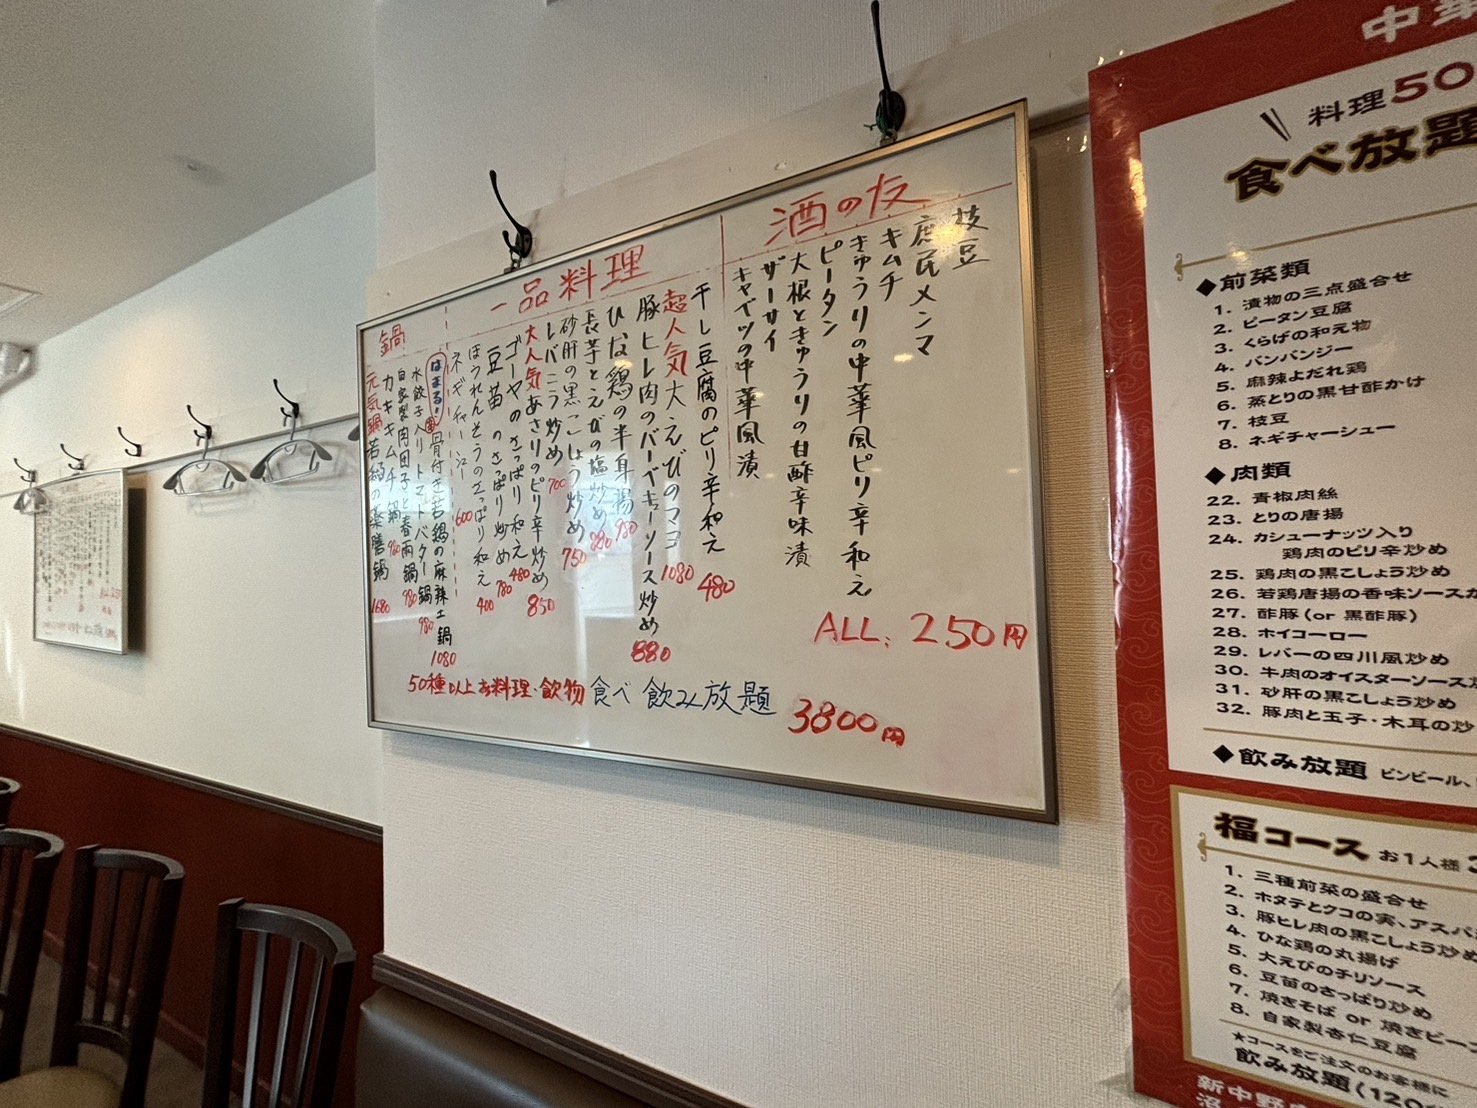 酒の友
枝豆
庶民メンマ
キムチ
きゅうりの中華風ピリ辛和え
ピータン
大根ときゅうりの甘酢辛味漬
ザーサイ
キャベツの中華風漬
ALL. 250円
一品料理
干し豆腐のピリ辛和え 480
超人気大えびのマヨ 1080
豚ヒレ肉のバーベキューソース炒め 880
ひな鶏の半身揚 980
長芋とえびの塩炒め 880
砂肝の黒こしょう炒め 750
レバニラ炒め 700
大人気あさりのピリ辛炒め 850
ゴーヤのさっぱり和え 480
豆苗のさっぱり炒め 780
ほうれんそうのさっぱり和え 400
ネギチャーシュー 600
鍋
はまる!骨付き若鶏の麻辣土鍋 1080
水餃子入りトマトバター鍋 980
自家製肉団子と春雨鍋 980
カキキムチ鍋 980
元気鍋若鶏の薬膳鍋 1680
50種以上お料理・飲物食べ飲み放題 3800円
中華
料理50
食べ放題
◆前菜類
1. 漬物の三点盛合せ
2. ピータン豆腐
3. くらげの和え物
4. バンバンジー
5. 麻辣よだれ鶏
6. 蒸とりの黒甘酢かけ
7. 枝豆
8. ネギチャーシュー
◆肉類
22. 青椒肉絲
23. とりの唐揚
24. カシューナッツ入り
鶏肉のピリ辛炒め
25. 鶏肉の黒こしょう炒め
26. 若鶏唐揚の香味ソースか
27. 酢豚(or 黒酢豚)
28. ホイコーロー
29. レバーの四川風炒め
30. 牛肉のオイスターソース炒
31. 砂肝の黒こしょう炒め
32. 豚肉と玉子・木耳の炒
◆飲み放題 ビンビール、
福コース お1人様 3
1. 三種前菜の盛合せ
2. ホタテとクコの実、アスパ
3. 豚ヒレ肉の黒こしょう炒め
4. ひな鶏の丸揚げ
5. 大えびのチリソース
6. 豆苗のさっぱり炒め
7. 焼きそば or 焼きビーフ
8. 自家製杏仁豆腐
★コースをご注文のお客様に
飲み放題(120
新中野